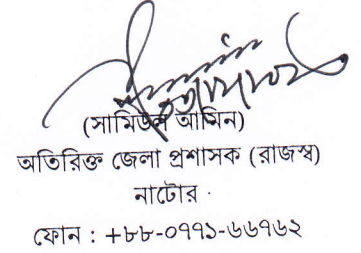 (সামিউল আমিন)
অতিরিক্ত জেলা প্রশাসক (রাজস্ব)
নাটোর
ফোন : +৮৮-০৭৭১-৬৬৭৬২